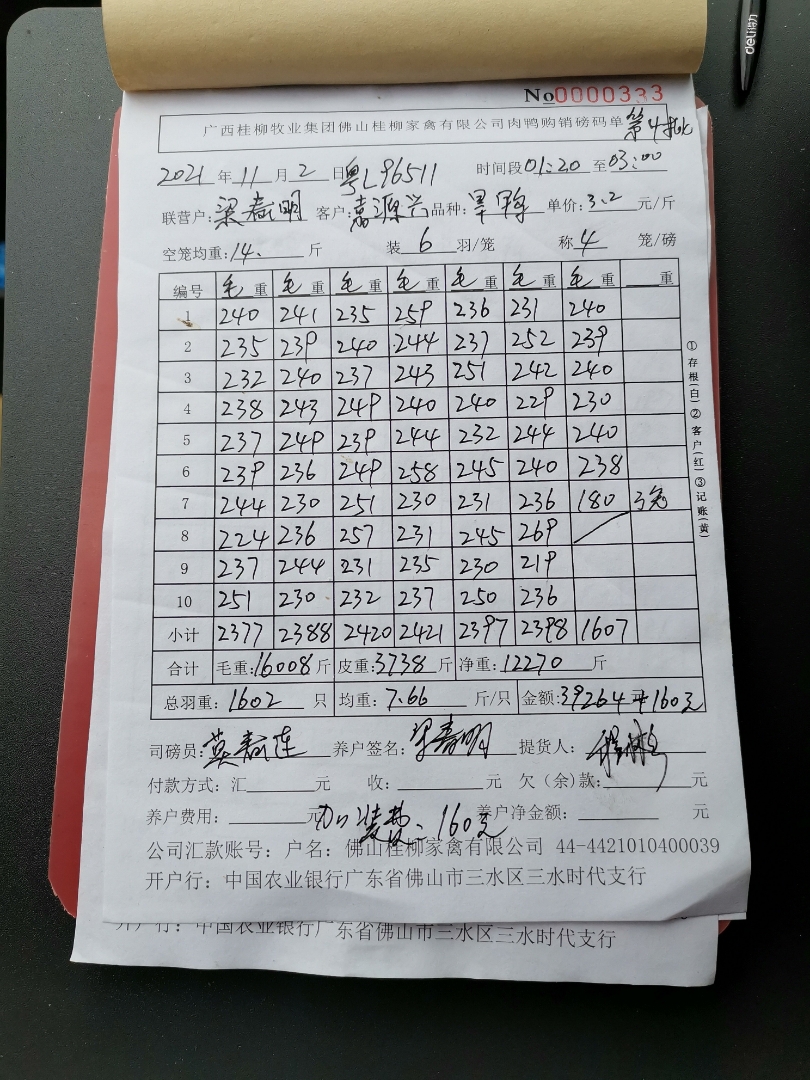 deli得力
No0000333
广西桂柳牧业集团佛山桂柳家禽有限公司肉鸭购销磅码单 第4批
2021年11月2日 粤L96511 时间段01:20至03:00
联营户:梁春明 客户:嘉源兴 品种:旱鸭 单价:3.2元/斤
空笼均重:14.斤 装6羽/笼 称4笼/磅
编号 毛重 毛重 毛重 毛重 毛重 毛重 毛重 重
1 240 241 235 259 236 231 240
2 235 239 240 244 237 252 239
3 232 240 237 243 251 242 240
4 238 243 249 240 240 229 230
5 237 249 239 244 232 244 240
6 239 236 249 258 245 240 238
7 244 230 251 230 231 236 180 3笼
8 224 236 257 231 245 269
9 237 244 231 235 230 219
10 251 230 232 237 250 236
小计 2377 2388 2420 2421 2397 2398 1607
合计 毛重:16008斤 皮重:3738斤 净重:12270斤
总羽重:1602只 均重:7.66斤/只 金额:39264元+160元
①存根(白)②客户(红)③记账(黄)
司磅员: 养户签名:梁春明 提货人:
付款方式:汇 元 收: 元 欠(余)款: 元
养户费用: 元 加装费:160元 养户净金额: 元
公司汇款账号:户名:佛山桂柳家禽有限公司 44-4421010400039
开户行:中国农业银行广东省佛山市三水区三水时代支行
开户行:中国农业银行广东省佛山市三水区三水时代支行